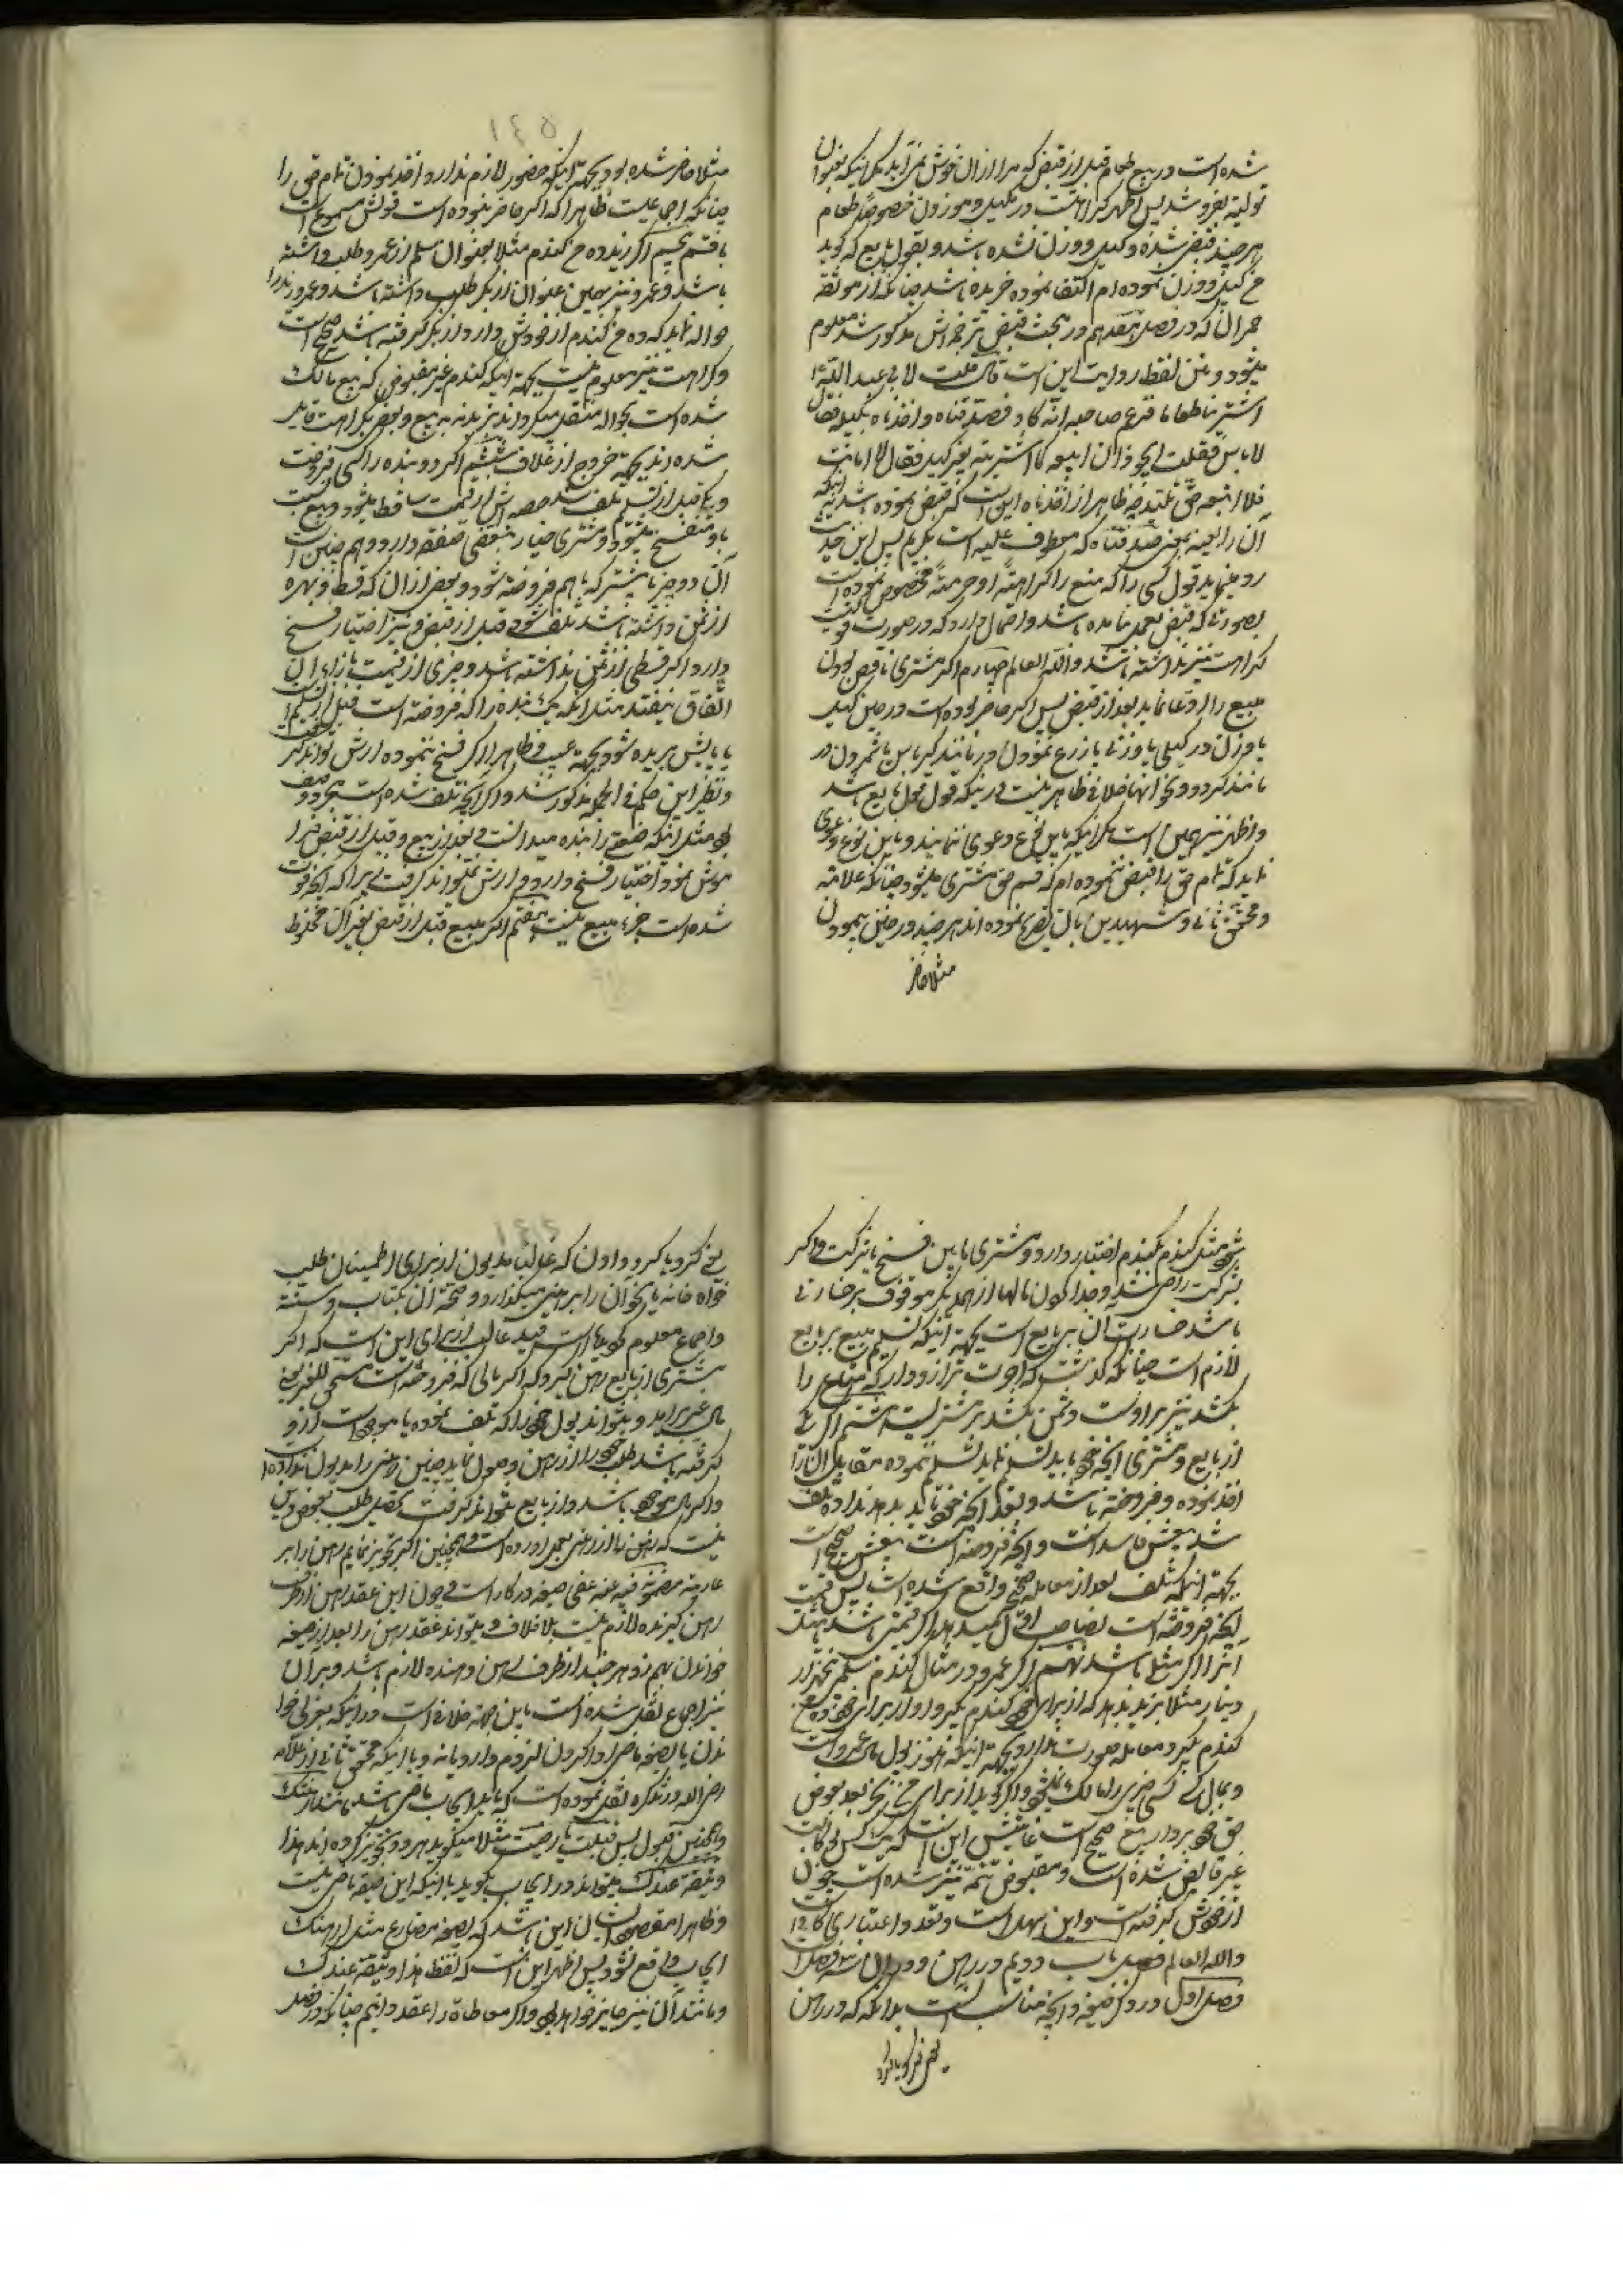 شده است در بیع طعام قبل از قبض که
تولیه بفروشد پس اظهر کراهت در مکیل و موزون خصوصا طعام
هر چند قبض شده و کیل و وزن نشده باشد و بقول بایع که گوید
من کیل و وزن نموده‌ام اکتفا نموده خریده باشد چنانکه از موثقه
که در فصل هم در بحث قبض ترجمه‌اش مذکور شد معلوم
میشود و متن لفظ روایت این است قال قلت لابی عبدالله ع
اشتری طعاما فزعم صاحبه انه کاله فصدقناه و اخذناه بکیله فقال
لا باس فقلت ایجوز ان ابیعه کما اشتریته بغیر کیل فقال لا اما انت
فلا تبعه حتی تکیله ظاهر از اخذناه این است که قبض نموده باشد
آن را بعد یعنی صدقناه که معطوف علیه است بگیریم پس این حدیث
رد مینماید قول کسی را که منع را کراهة او حرمة مخصوص نموده است
بصورتی که قبض بعمل نیامده باشد و احتمال دارد که در صورت
کراهت نیز نداشته باشد والله العالم چهارم اگر مشتری ناقص بودن
مبیع را ادعا نماید بعد از قبض پس اگر حاضر بوده است در حین کیل
یا وزن در کیلی یا وزنی یا زرع نمودن در مانند کرباس یا شمردن در
مانند گردو و نحو آنها خلافی ظاهر نیست در اینکه قول قول بایع باشد
و اظهر نیز همین است مگر اینکه باین نوع دعوی ننماید و باین نوع دعوی
نماید که تمام حق را قبض ننموده‌ام که قسم حق مشتری میشود چنانکه علامه
و محقق ثانی و شهیدین بآن تصریح نموده‌اند هر چند در حین پیمودن
مثلا حاضر
مثلا حاضر شده بود بجهة اینکه حضور لازم ندارد اخذ نمودن تمام حق را
چنانکه اجماعیست ظاهرا که اگر حاضر نبوده است قولش مسموع است
با قسم پنجم اگر زید ده من گندم مثلا بعنوان سلم از عمرو طلب داشته
باشد و عمرو نیز بهمین عنوان از بکر طلب داشته باشد و عمرو زید را
حواله نماید که ده من گندم از خودش دارد از بکر گرفته باشد صحیح است
و کراهت نیز معلوم نیست بجهة اینکه گندم غیر مقبوض که بیع مالک
شده است بحواله منتقل میگرداند بزید نه به بیع و بعضی بکراهت قایل
شده‌اند بجهة خروج از خلاف ششم اگر دو بنده را کسی فروخت
و یکی قبل از تسلیم تلف شد حصه‌اش از قیمت ساقط میشود و بیع نسبت
باو منفسخ میشود و مشتری خیار تبعض صفقه دارد و هم چنین است
آن دو چیز یا بیشتر که با هم فروخته شود و بعض از آن که قسط و بهره
از ثمن داشته باشد تلف شود قبل از قبض و نیز اختیار فسخ
دارد و اگر قسطی از ثمن نداشته باشد و چیزی از قیمت بازاء آن
اتفاق نیفتد مثل آنکه یک بنده را که فروخته است قبل از تسلیم
یا پایش بریده شود بجهة عیب و ظاهرا اگر فسخ ننموده ارش تواند گرفت
و نظیر این حکم فی الجمله مذکور شد و اگر آنچه تلف شده است مجرد وصف
بود مثل اینکه صنعتی را بنده میدانست و بعد از بیع و قبل از قبض فراموش
نمود اختیار فسخ دارد و ارش نمیتواند گرفت زیرا که آنچه فوت
شده است جزء مبیع نیست هفتم اگر مبیع قبل از قبض بغیر آن مخلوط
شود مثل گندم بگندم اختیار دارد مشتری مابین فسخ یا شرکت و اگر
بشرکت راضی شد و جدا کردن مالها از همدیگر موقوف بر خسارتی
باشد خسارت آن بر بایع است بجهة اینکه تسلیم مبیع بر بایع
لازم است چنانکه گذشت که اجرت ترازودار که متاع را
بکشد نیز بر اوست و ثمن بکشد بر مشتریست هشتم اگر یکی
از بایع و مشتری آنچه خود باید تسلیم نماید تسلیم نموده مقابل آن را
اخذ نموده و فروخته باشد و بعد آنچه خود باید بدهد نداده تلف
شد بیعش فاسد است و آنچه فروخته است بیعش صحیح است
بجهة اینکه تلف بعد از معامله صحیح واقع شده است پس قیمت
آنچه فروخته است بصاحب اول میدهد اگر قیمتی باشد و مثل
آنرا اگر مثلی باشد نهم اگر عمرو در مثال گندم سلم پنجهزار
دینار مثلا بزید بدهد که از برای خود گندم بگیر و او از برای خود ده من
گندم بگیرد معامله صورت ندارد بجهة اینکه هنوز پول مال عمرو است
و بمال کسی کسی چیزی را مالک نمیشود و اگر گوید از برای من بخر بعد بعوض
حق خود بردار بیع صحیح است غایتش این است که یک کس بوکالت
غیر قابض شده است و مقبوض نیز شده است چون
از خودش گرفته است و این سهل است و تعدد اعتباری کافی است
والله العالم فصل باب دویم در رهن و در آن سه فصل است
فصل اول در ذکر صیغه و آنچه مناسب است بدانکه که در رهن
یعنی گرو یا گرو
یعنی گرو یا گرو دادن که غالبا مدیون از برای اطمینان طلب
خواه خانه یا نحو آن را برهن میگذارد و صحة آن بکتاب و سنة
و اجماع معلوم گردیده است و قید غالب از برای این است که اگر
مشتری از بایع رهن گیرد که اگر مالی که فروخته است مستحق للغیر یعنی
مال غیر برآمد و نتواند پول خود را که تلف نموده یا موجود است از او
گرفته باشد طلب خود را از رهن وصول نماید چنین رهنی را مدیون نداده
و اگر مال موجود باشد و از بایع نتواند گرفت تحصیل طلب بعوض دین
نیست که رهن ما از رهنی بعمل آورده است و همچنین اگر تجویز نمایم رهن را بر
عاریة مضمونه فیه عنه عفی صیغه در کار است و چون این عقد رهن از طرف
رهن گیرنده لازم نیست بلا خلاف و میتواند عقد رهن را بعد از صیغه
خواندن بهم زد هر چند از طرف رهن دهنده لازم باشد و بر آن
نیز اجماع نقل شده است باین جهة خلافی است در اینکه بعربی خواندن
یا بصیغه ماضی ادا کردن لزوم دارد یا نه و با اینکه محقق ثانی از علامه
رضی الله در تذکره نقل نموده است که باید ایجاب ماضی باشد مانند رهنتک
و همچنین قبول پس قبلت یا رضیت مثلا میگوید هر دو تجویز کرده‌اند هذا
وثیقة عندک بتواند در ایجاب گوید با اینکه این صیغه ماضی نیست
و ظاهرا مقصودشان این باشد که بصیغه مضارع مثل ارهنک
ایجاب واقع نشود پس اظهر این است که لفظ هذا وثیقة عندک
و مانند آن نیز جایز خواهد بود و اگر معاطاة را عقد دانیم چنانکه در فصل